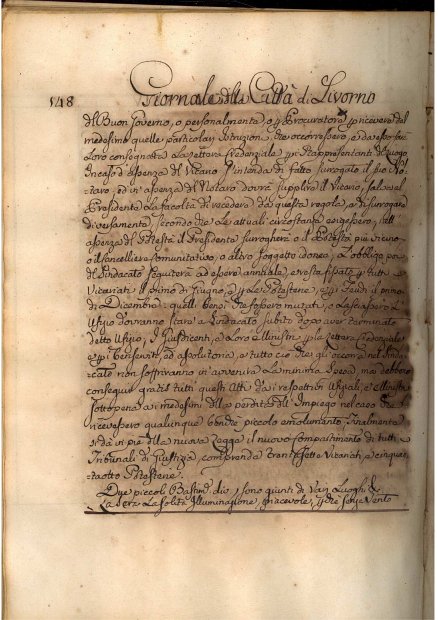 148
Giornale della Città di Livorno
del Buon Governo, o personalmente, o p Procuratore p ricevere dal
medesimo quelle particolari Istruzioni che occorressero, e da esser
Loro consegnata La Lettera Credenziale p i Rappresentanti del luogo
In caso d'assenza del Vicario s'intenda di fatto surrogato il suo No-
taro, ed in assenza del Notaro dovrà supplire il Vicario, salva al
Presidente La facoltà di recedere da questa regola, o di surrogare
diversamente, secondo che Le attuali circostanze esigessero, nell'
assenza del Potestà il Presidente surrogherà o il Potestà più vicino
o il Cancelliere Comunitativo, o altro soggetto idoneo, L'obbligo poi
del Sindacato seguiterà ad essere annuale, e resta fissato p tutti i
Vicariati il primo di Giugno, e p Le Potesterie, e p i Feudi il primo
di Dicembre: quelli bensì che fossero mutati, o lasciassero L'
Ufizio dovranno stare a Sindacato subito dopo aver terminato
detto Ufizio, I Giusdicenti, e Loro Ministri p La Lettera Credenziale
e p i Benserviti ed assolutorie, e tutto ciò che gli occorra nel Sinda-
cato non soffriranno in avvenire La minima spesa, ma debbano
conseguir gratis tutti questi Atti da i rispettivi Ufiziali, e Ministri
sotto pena a i medesimi della perdita dell'Impiego nel caso che
ricevessero qualunque benche piccolo emolumento. Finalmente
si dà in piè della nuova Legge il nuovo compartimento di tutti i
Tribunali di Giustizia, comprende trentasette Vicariati, e cinquan-
taotto Potesterie.
Due piccoli Bastim. sono giunti di Varj Luoghi &
La sera La solita Illuminazione, piacevole p che senza Vento